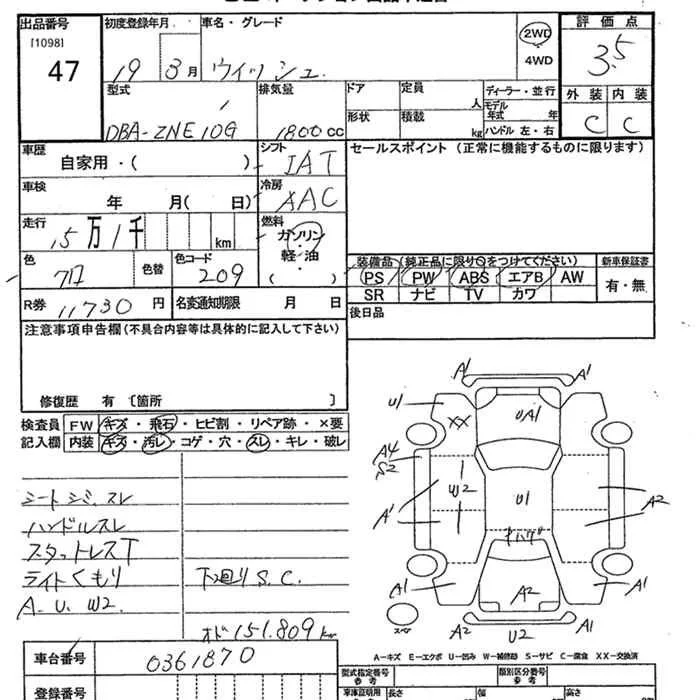 出品番号 初度登録年月 車名・グレード 2WD 評価点
[1098] 47 19 3月 ウイッシュ 4WD 3.5
型式 排気量 ドア 定員 人 ディーラー・並行 外装 内装
モデル年式 年
DBA-ZNE10G 1800cc 形状 積載 kg ハンドル 左・右 C C
車歴 自家用・( ) シフト IAT セールスポイント (正常に機能するものに限ります)
車検 年 月( 日) 冷房 AAC
走行 15万1千 km 燃料 ガソリン・軽・油 ( )
色 色替 色コード 209 装備品 (純正品に限り○をつけてください) 新車保証書
PS PW ABS エアB AW 有・無
SR ナビ TV カワ
R券 11730 円 名変通知期限 月 日 後日品
注意事項申告欄 (不具合内容等は具体的に記入して下さい)
修復歴 有 〔箇所 〕
検査員 FW キズ・飛石・ヒビ割・リペア跡・×要
記入欄 内装 キズ・汚レ・コゲ・穴・スレ・キレ・破レ
ハンドルスレ
スタットレスT
ライトくもり 下回りS.C.
A.U.W2.
オド151.809km
A1 A1
U1 XX UA1
A4 S2
W2 U1 A2
A1
キハゲ
A1 A2 A1
スペア A2 U2 A1
A-キズ E-エクボ U-凹み W-補修跡 S-サビ C-腐食 XX-交換済
車台番号 0361870 型式指定番号 参考 類別区分番号 参考
登録番号 車庫証明用 参考 長さ 幅 高さ